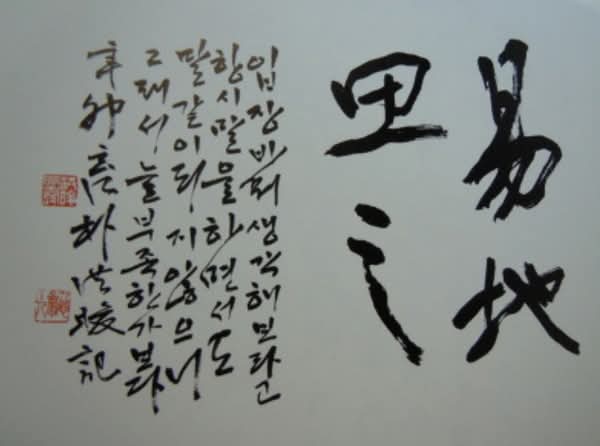 易地
思之
입장 바꿔 생각해 보라고
항시 말을 하면서도
말같이 되지 않으니
그래서 늘 부족한가 보다
辛卯 朴洪 記